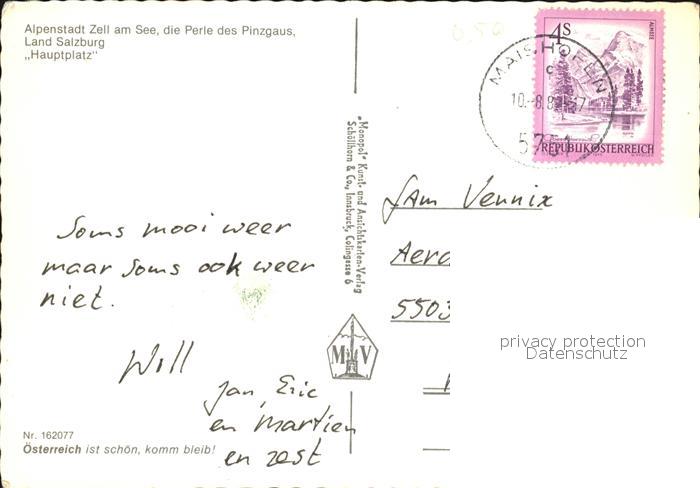 Alpenstadt Zell am See, die Perle des Pinzgaus,
Land Salzburg
„Hauptplatz"
0,50
4S
ALMSEE
REPUBLIK ÖSTERREICH
MAISHOFEN
5751
„Monopol" Kunst- und Ansichtskarten-Verlag
Schöllhorn & Co., Innsbruck, Colingasse 6
M V
Soms mooi weer
maar soms ook weer
niet.
Will
Jan, Eric
en Martien
en zest
Vennix
Aero
5503
privacy protection
Datenschutz
Nr. 162077
Österreich ist schön, komm bleib!